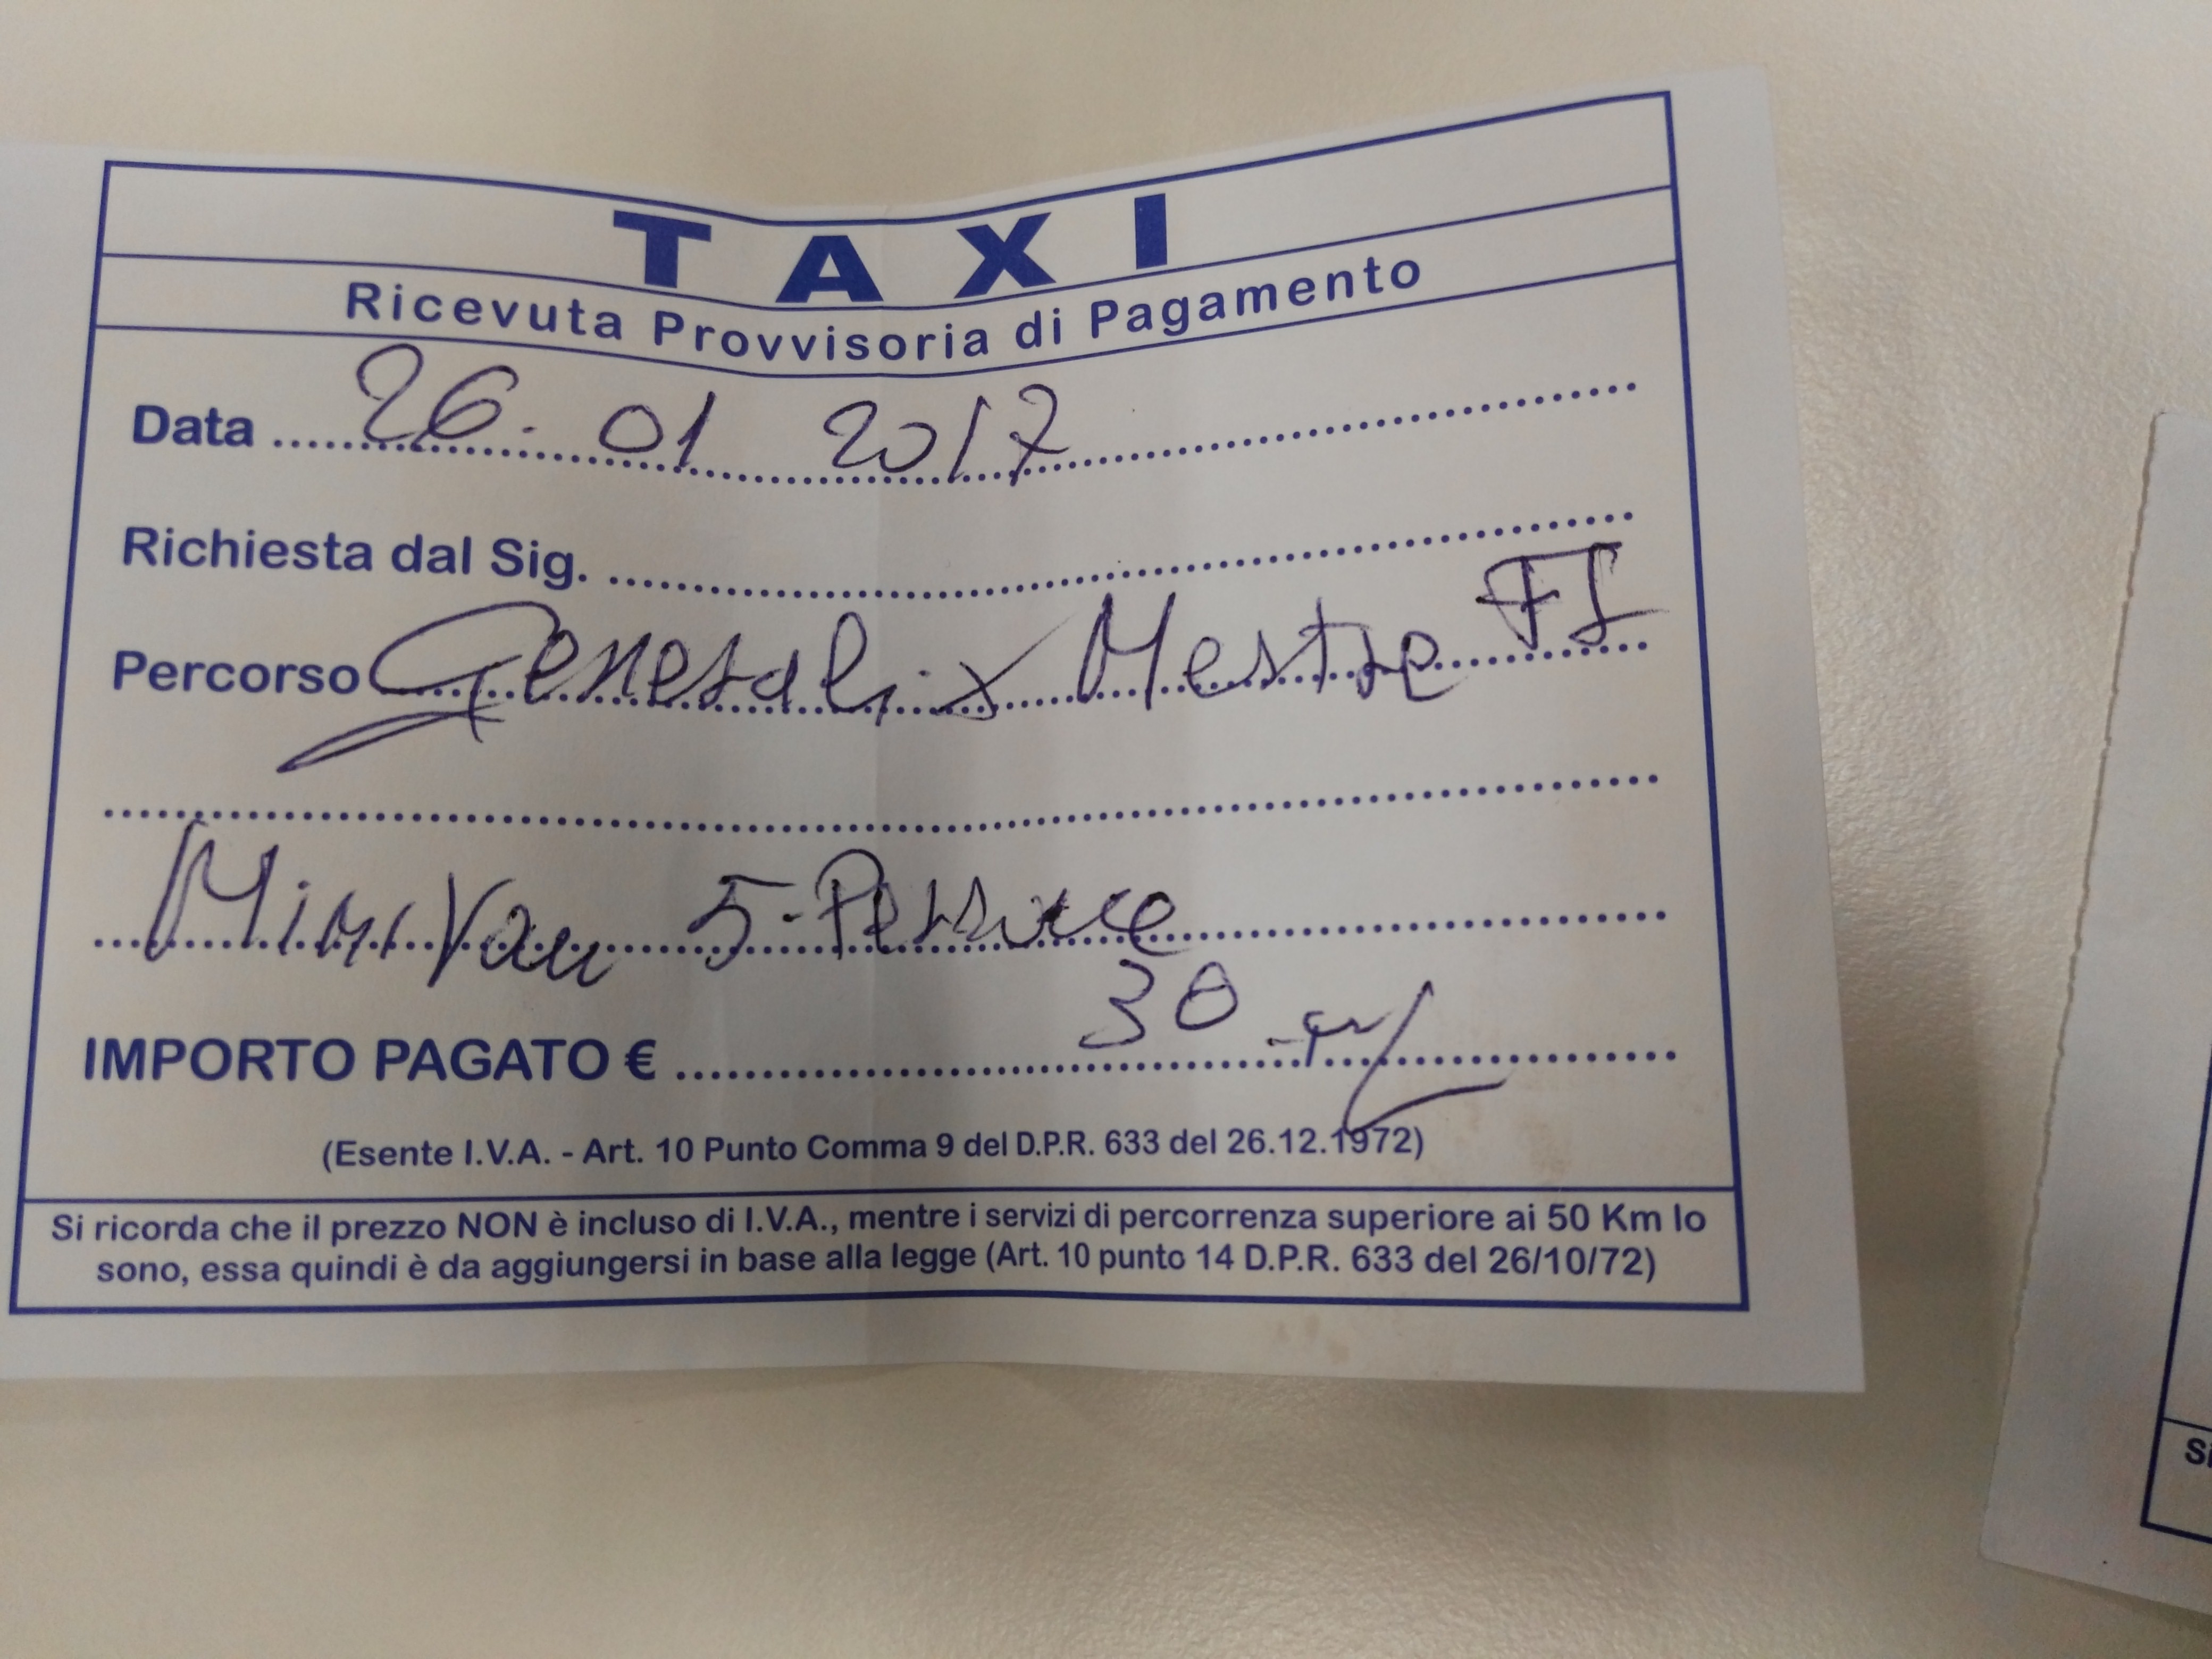 TAXI
Ricevuta Provvisoria di Pagamento
Data 26. 01 2017
Richiesta dal Sig.
Percorso Generali x Mestre
MiniVan 5-Persone
IMPORTO PAGATO € 30
(Esente I.V.A. - Art. 10 Punto Comma 9 del D.P.R. 633 del 26.12.1972)
Si ricorda che il prezzo NON è incluso di I.V.A., mentre i servizi di percorrenza superiore ai 50 Km lo
sono, essa quindi è da aggiungersi in base alla legge (Art. 10 punto 14 D.P.R. 633 del 26/10/72)